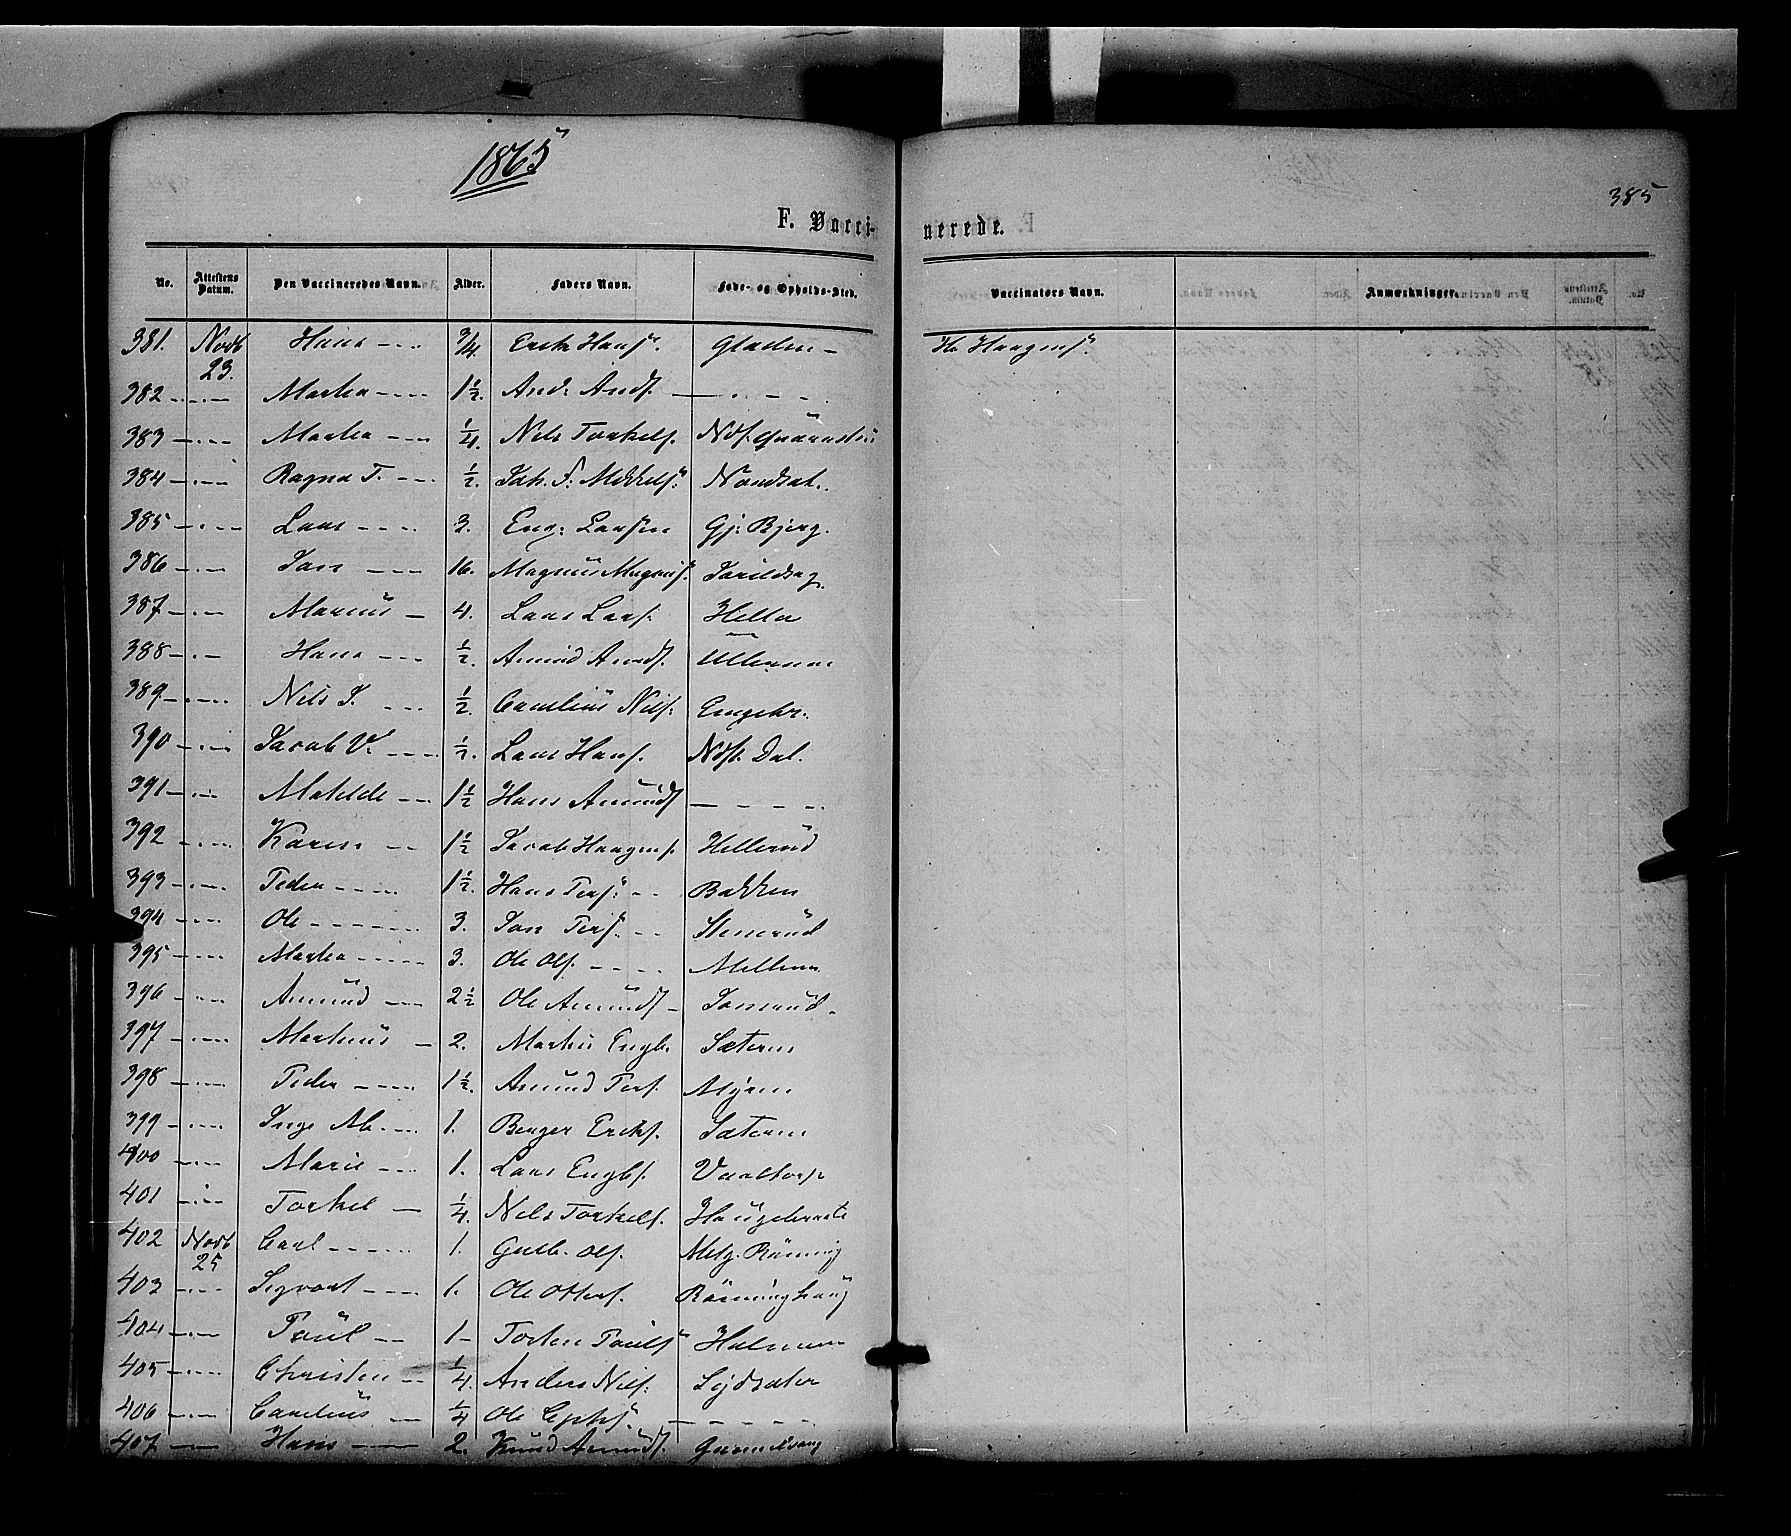 1865
385
F. Vacci-nerede.
No. Attestens Datum. Den Vaccineredes Navn. Alder. Faders Navn. Føde- og Opholds-Sted. Vaccinators Navn. Anmærkninger.
381. Novb 23. Hans 3/4. Erik Hans. Gladen H. Haagens.
382 Martea 1 1/2. And. Ands. - . - . -
383 Martea 1/4. Nils Torkels.
384 Ragna T. 1/2. Joh. F. Mikkels. Nordsæt.
385 Lars 3. Eng. Larsen Gj: Bjerg.
386 Jon 16. Magnus Magnus.
387 Marius 4. Lars Lars. Hella
388 Hans 1/2. Amund Amds. Ulleren
389 Nils J. 1/2. Carelius Nils. Engehr.
390 Jacob V. 1/2. Lars Hans. Nds. Dal.
391 Matilde 1 1/2 Hans Amunds
392 Karen 1 1/2 Jacob Haagens. Hellerud
393 Peder 1 1/2. Hans Pers. Bakken
394 Ole 3. Jon Pers. Stenrud
395 Martea 3. Ole Ols. Mellem
396 Amund 2 1/2 Ole Amunds
397 Martinus 2. Martin Engb. Sæteren
398 Peder 1 1/2. Amund Pers. Myren
399 Inge M. 1. Berger Eriks. Sæteren
400 Marie 1. Lars Engbs. Vaaltorp
401 Torkel 1/4. Nils Torkels.
402 Novb 25 Carl 1. Gulb. Ols. Melg. Rønning
403 Sigvart 1. Ole Otters. Rønninghaug
404 Paul 1 Torsten Pauls Halmrm
405 Christen 1/4. Anders Nils. Lydsæter
406 Carelius 1/4 Ole
407 Hans 2. Knud Amunds.